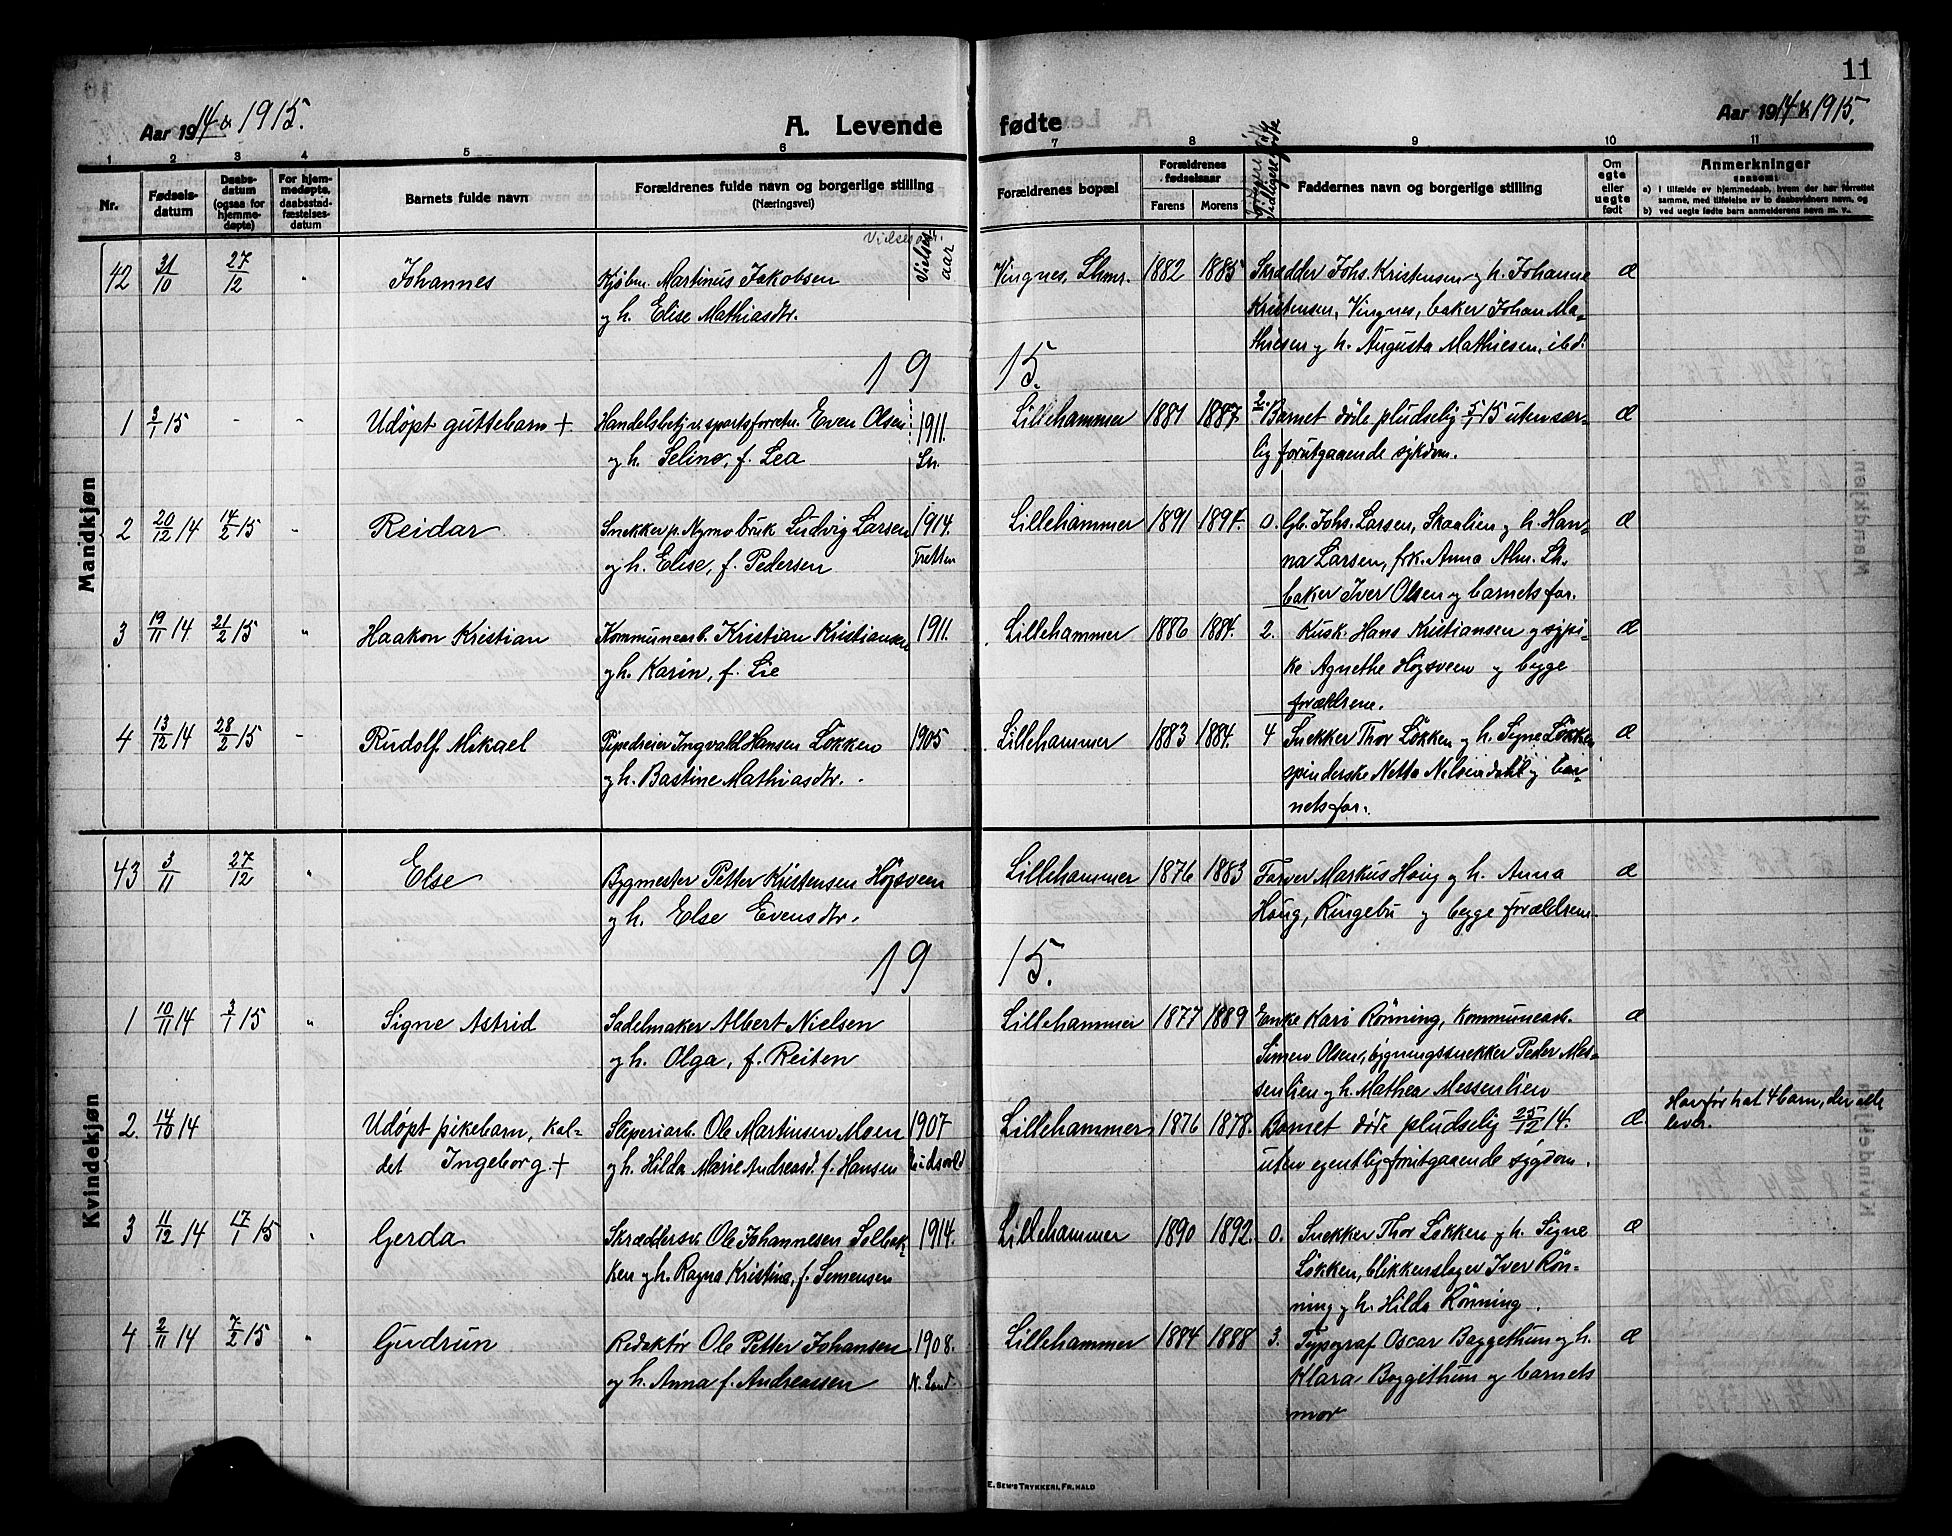 11
Aar 1914 & 1915.
A. Levende fødte
Aar 1914 & 1915.
1 2 3 4 5 6 7 8 9 10 11
Nr.
Fødselsdatum
Daabsdatum (ogsaa for hjemmedøpte)
For hjemmedøpte, daabsstadfæstelsesdatum
Barnets fulde navn
Forældrenes fulde navn og borgerlige stilling
(Næringsvei)
Vielsesaar
Forældrenes bopæl
Forældrenes fødselsaar
Farens Morens
Faddernes navn og borgerlige stilling
Om egte eller uegte født
Anmerkninger
saasom:
a) i tilfælde av hjemmedaab, hvem der har forrettet samme, med tilføielse av to daabsvidners navn, og
b) ved uegte fødte barn anmelderens navn m. v.
Mandkjøn
42 31/10 27/12 " Johannes Kjøbm. Martinus Jakobsen Vingnes, Lhmr. 1882 1885 Skrædder Johs. Kristensen og h. Johanne æ
og h. Elise Mathiasdtr. Kristensen, Vingnes, baker Johan Ma-
thiesen og h. Augusta Mathiesen, ibd.
1915.
1 3/1 15 - - Udøpt guttebarn + Handelsbetj. v. sportsforretn. Even Olsen 1911. Lillehammer 1881 1887. 2. Barnet døde pludselig 5/1 15 uten sær- æ
og h. Seline, f. Lea lig forutgaaende sykdom.
2 20/12 14 14/2 15 - Reidar Snekker p. Nymo bruk Ludvig Larsen 1914. Lillehammer 1891 1894. 0. Gb. Johs. Larsen, Skaalien og h. Han- æ
og h. Elise, f. Pedersen Tretten na Larsen, frk. Anna Alm. Lh.
baker Iver Olsen og barnets far.
3 19/11 14 21/2 15 " Haakon Kristian Kommunearb. Kristian Kristiansen 1911. Lillehammer 1886 1884. 2. Kusk Hans Kristiansen og sypi- æ
og h. Karin, f. Lie ke Agnethe Høgsveen og begge
forældrene.
4 13/12 14 28/2 15 - Rudolf Mikael Pipedreier Ingvald Hansen Løkken 1905 Lillehammer 1883 1884. 4 Snekker Thor Løkken og h. Signe Løkken æ
og h. Bastine Mathiasdtr. spinderske Netta Nilsen og bar-
nets far.
Kvindekjøn
43 3/11 27/12 " Else Bygmester Petter Kristensen Høgsveen Lillehammer 1876 1883 Farver Markus Haug og h. Anna æ
og h. Else Evensdtr. Haug, Ringebu og begge forældrene.
1915.
1 10/11 14 3/1 15 " Signe Astrid Sadelmaker Albert Nielsen Lillehammer 1877 1889 Enke Kari Rønning, kommunearb. æ
og h. Olga, f. Reiten Simen Olsen, bygningssnekker Peder Mes-
senlien og h. Mathea Messenlien
2. 14/10 14 Udøpt pikebarn, kal- Sliperiarb. Ole Martinsen Moen 1907 Lillehammer 1876 1878. Barnet døde pludselig 25/12 14. æ. Har før hat 4 barn, der alle
det Ingeborg. + og h. Hilda Marie Andreasd. f. Hansen Eidsvold uten egentlig forutgaaende sygdom. lever.
3 11/12 14 17/1 15 " Gerda Skræddersv. Ole Johannesen Solbak- 1914. Lillehammer 1890 1892. 0. Snekker Thor Løkken og h. Signe æ
ken og h. Ragna Kristine, f. Simensen Løkken, blikkenslager Iver Røn-
ning og h. Hilda Rønning.
4 2/11 14 7/2 15 " Gudrun Redaktør Ole Petter Johansen 1908. Lillehammer 1884 1888 3. Typograf Oscar Baggethun og h. æ
og h. Anna f. Andreassen N. Land Klara Baggethun og barnets
mor
E. SEM'S TRYKKERI, FR.HALD